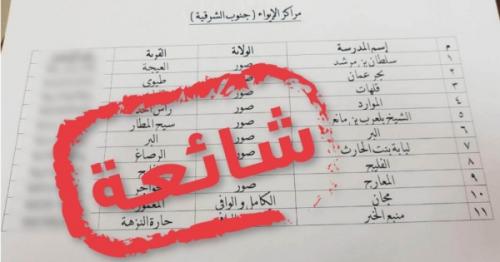 مراكز الإيواء ( جنوب الشرقية )
م إسم المدرسة الولاية القرية
١ سلطان بن مرشد صور العيجة
٢ بحر عمان صور طيوي
٣ قلهات صور
٤ الموارد صور رأس
٥ الشيخ بلعرب بن صور سيح المطار
٦ البر صور البر
٧ لبابة بنت الحارث الرصاغ
٨ الفليج
٩ المعارج صور
١٠ مجان الكامل والوافي
١١ منبع الخير حارة النزهة
شائعة